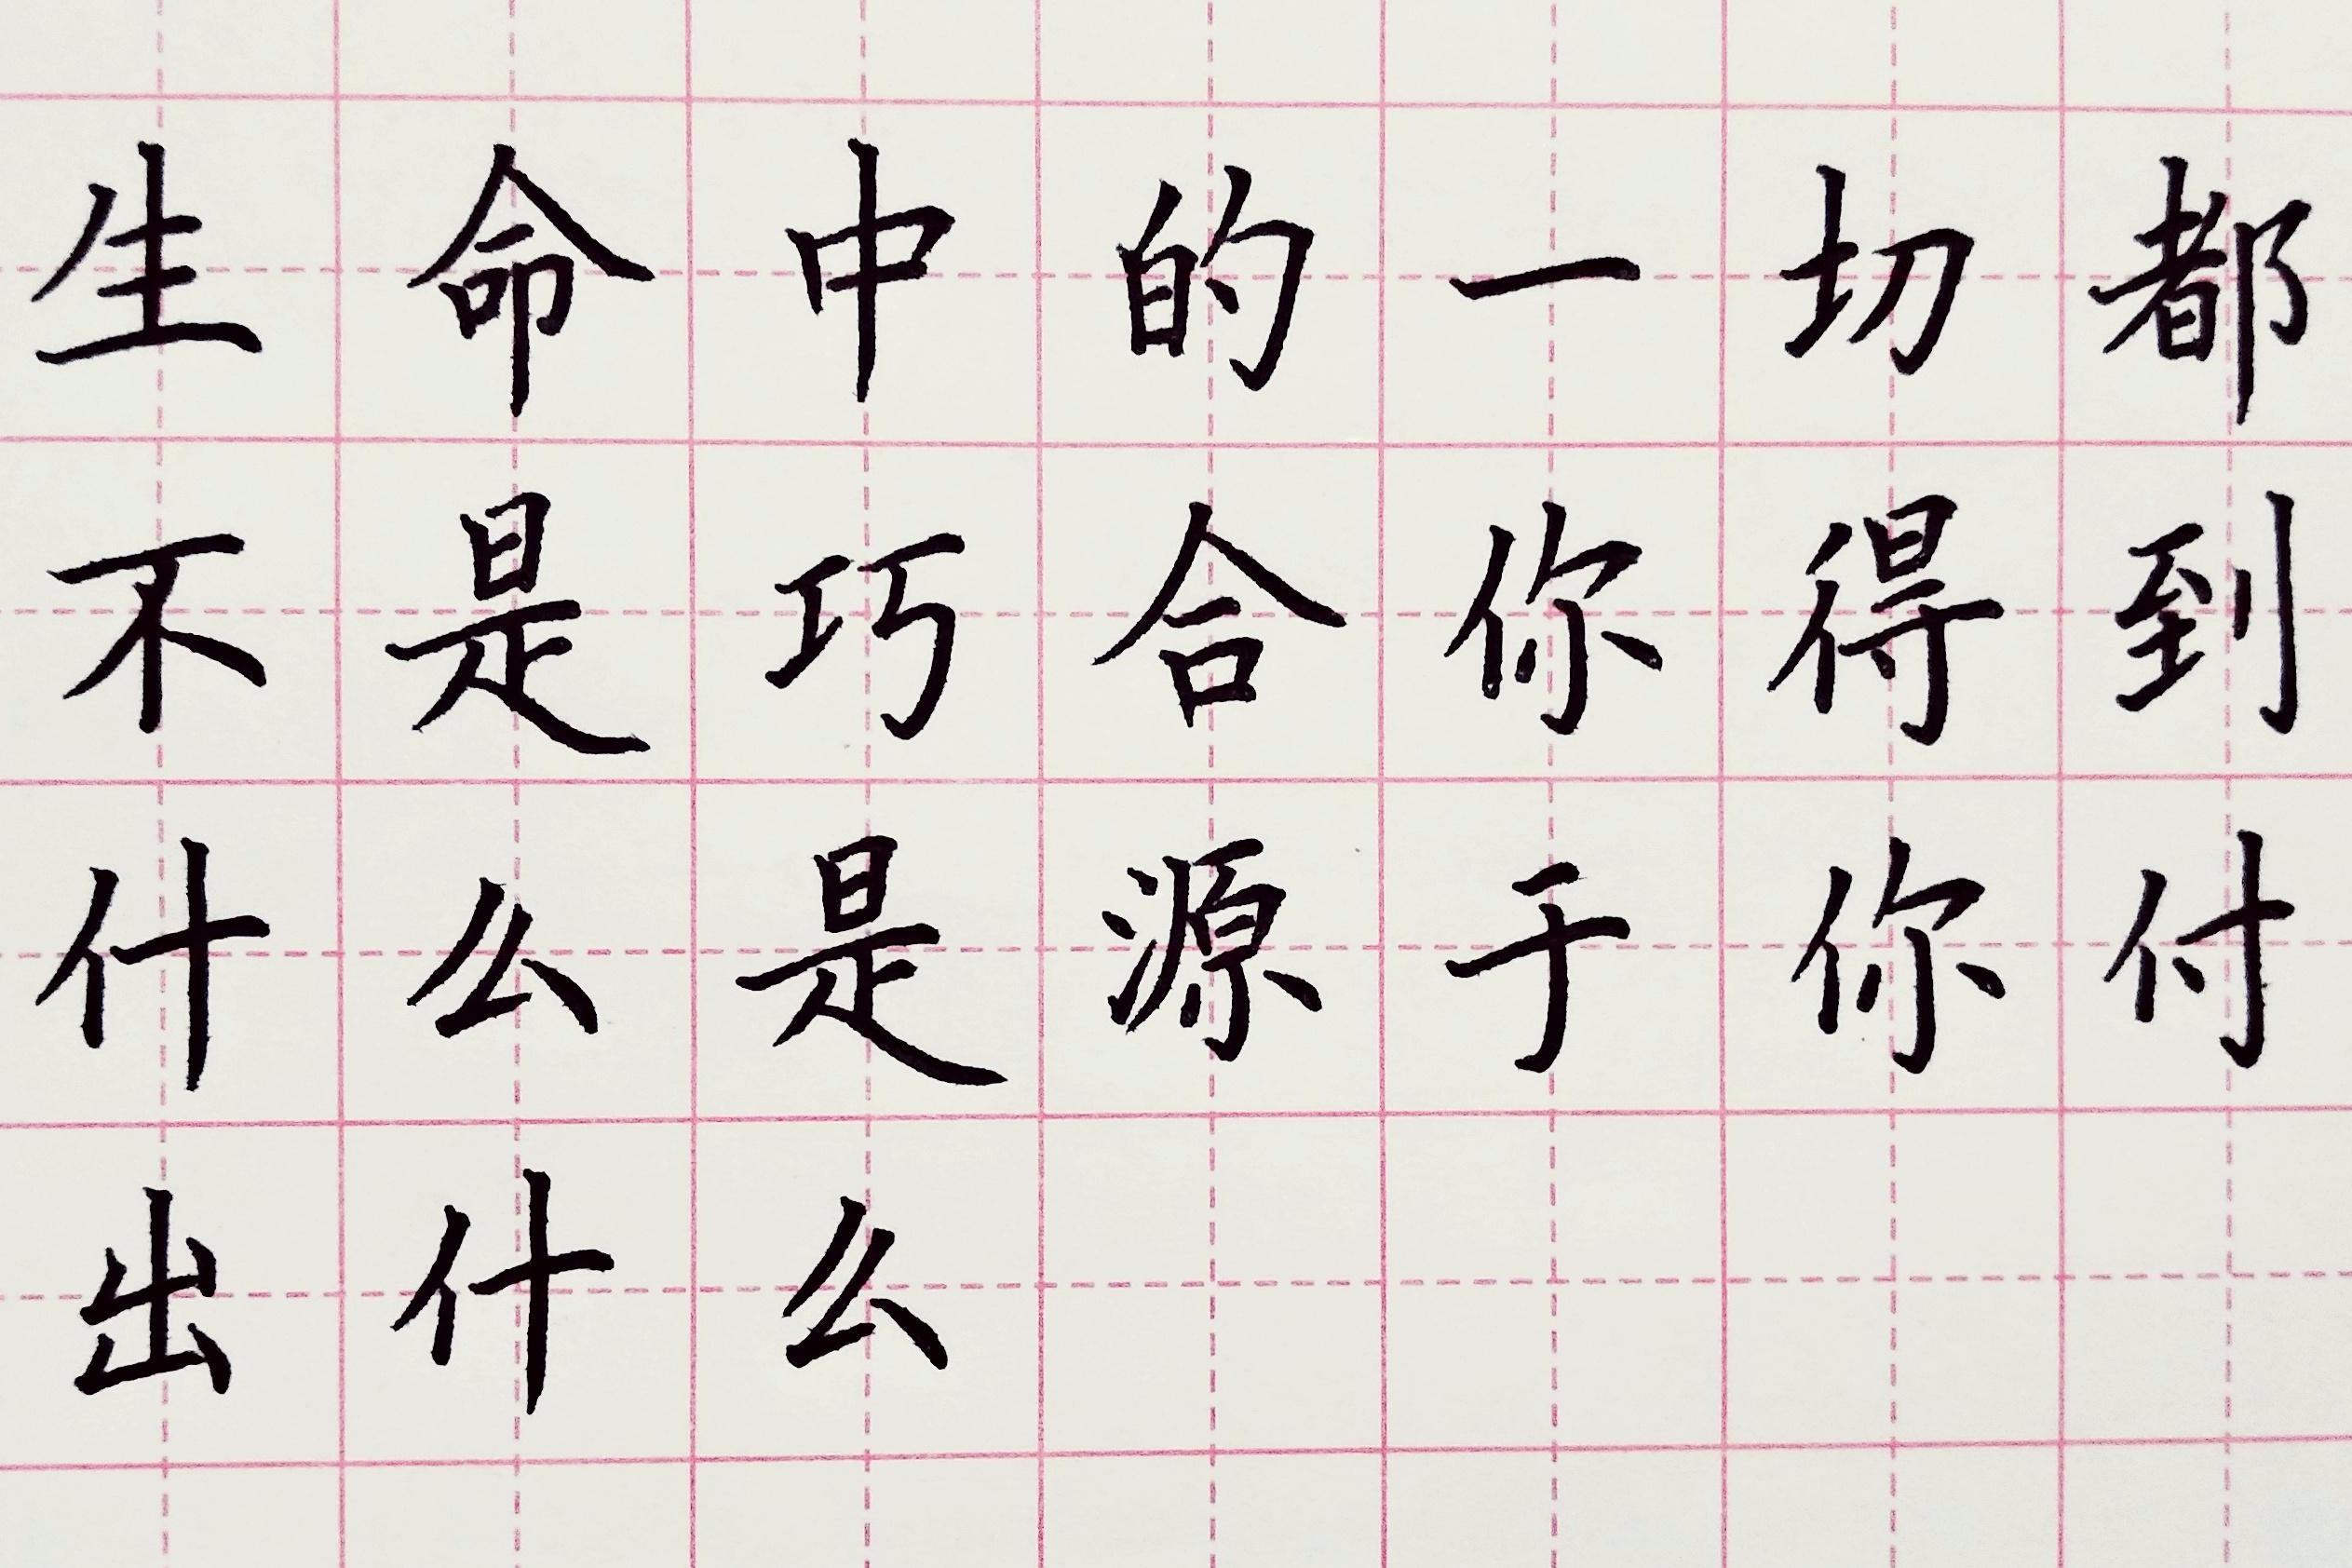 生命中的一切都
不是巧合你得到
什么是源于你付
出什么